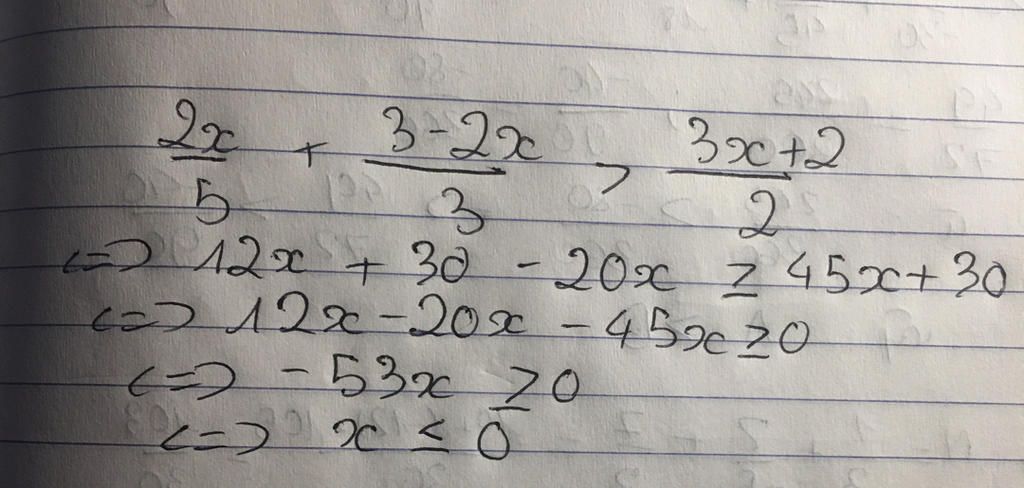 2x/5 + (3-2x)/3 > (3x+2)/2
<=> 12x + 30 - 20x ≥ 45x + 30
<=> 12x - 20x - 45x ≥ 0
<=> -53x ≥ 0
<=> x ≤ 0